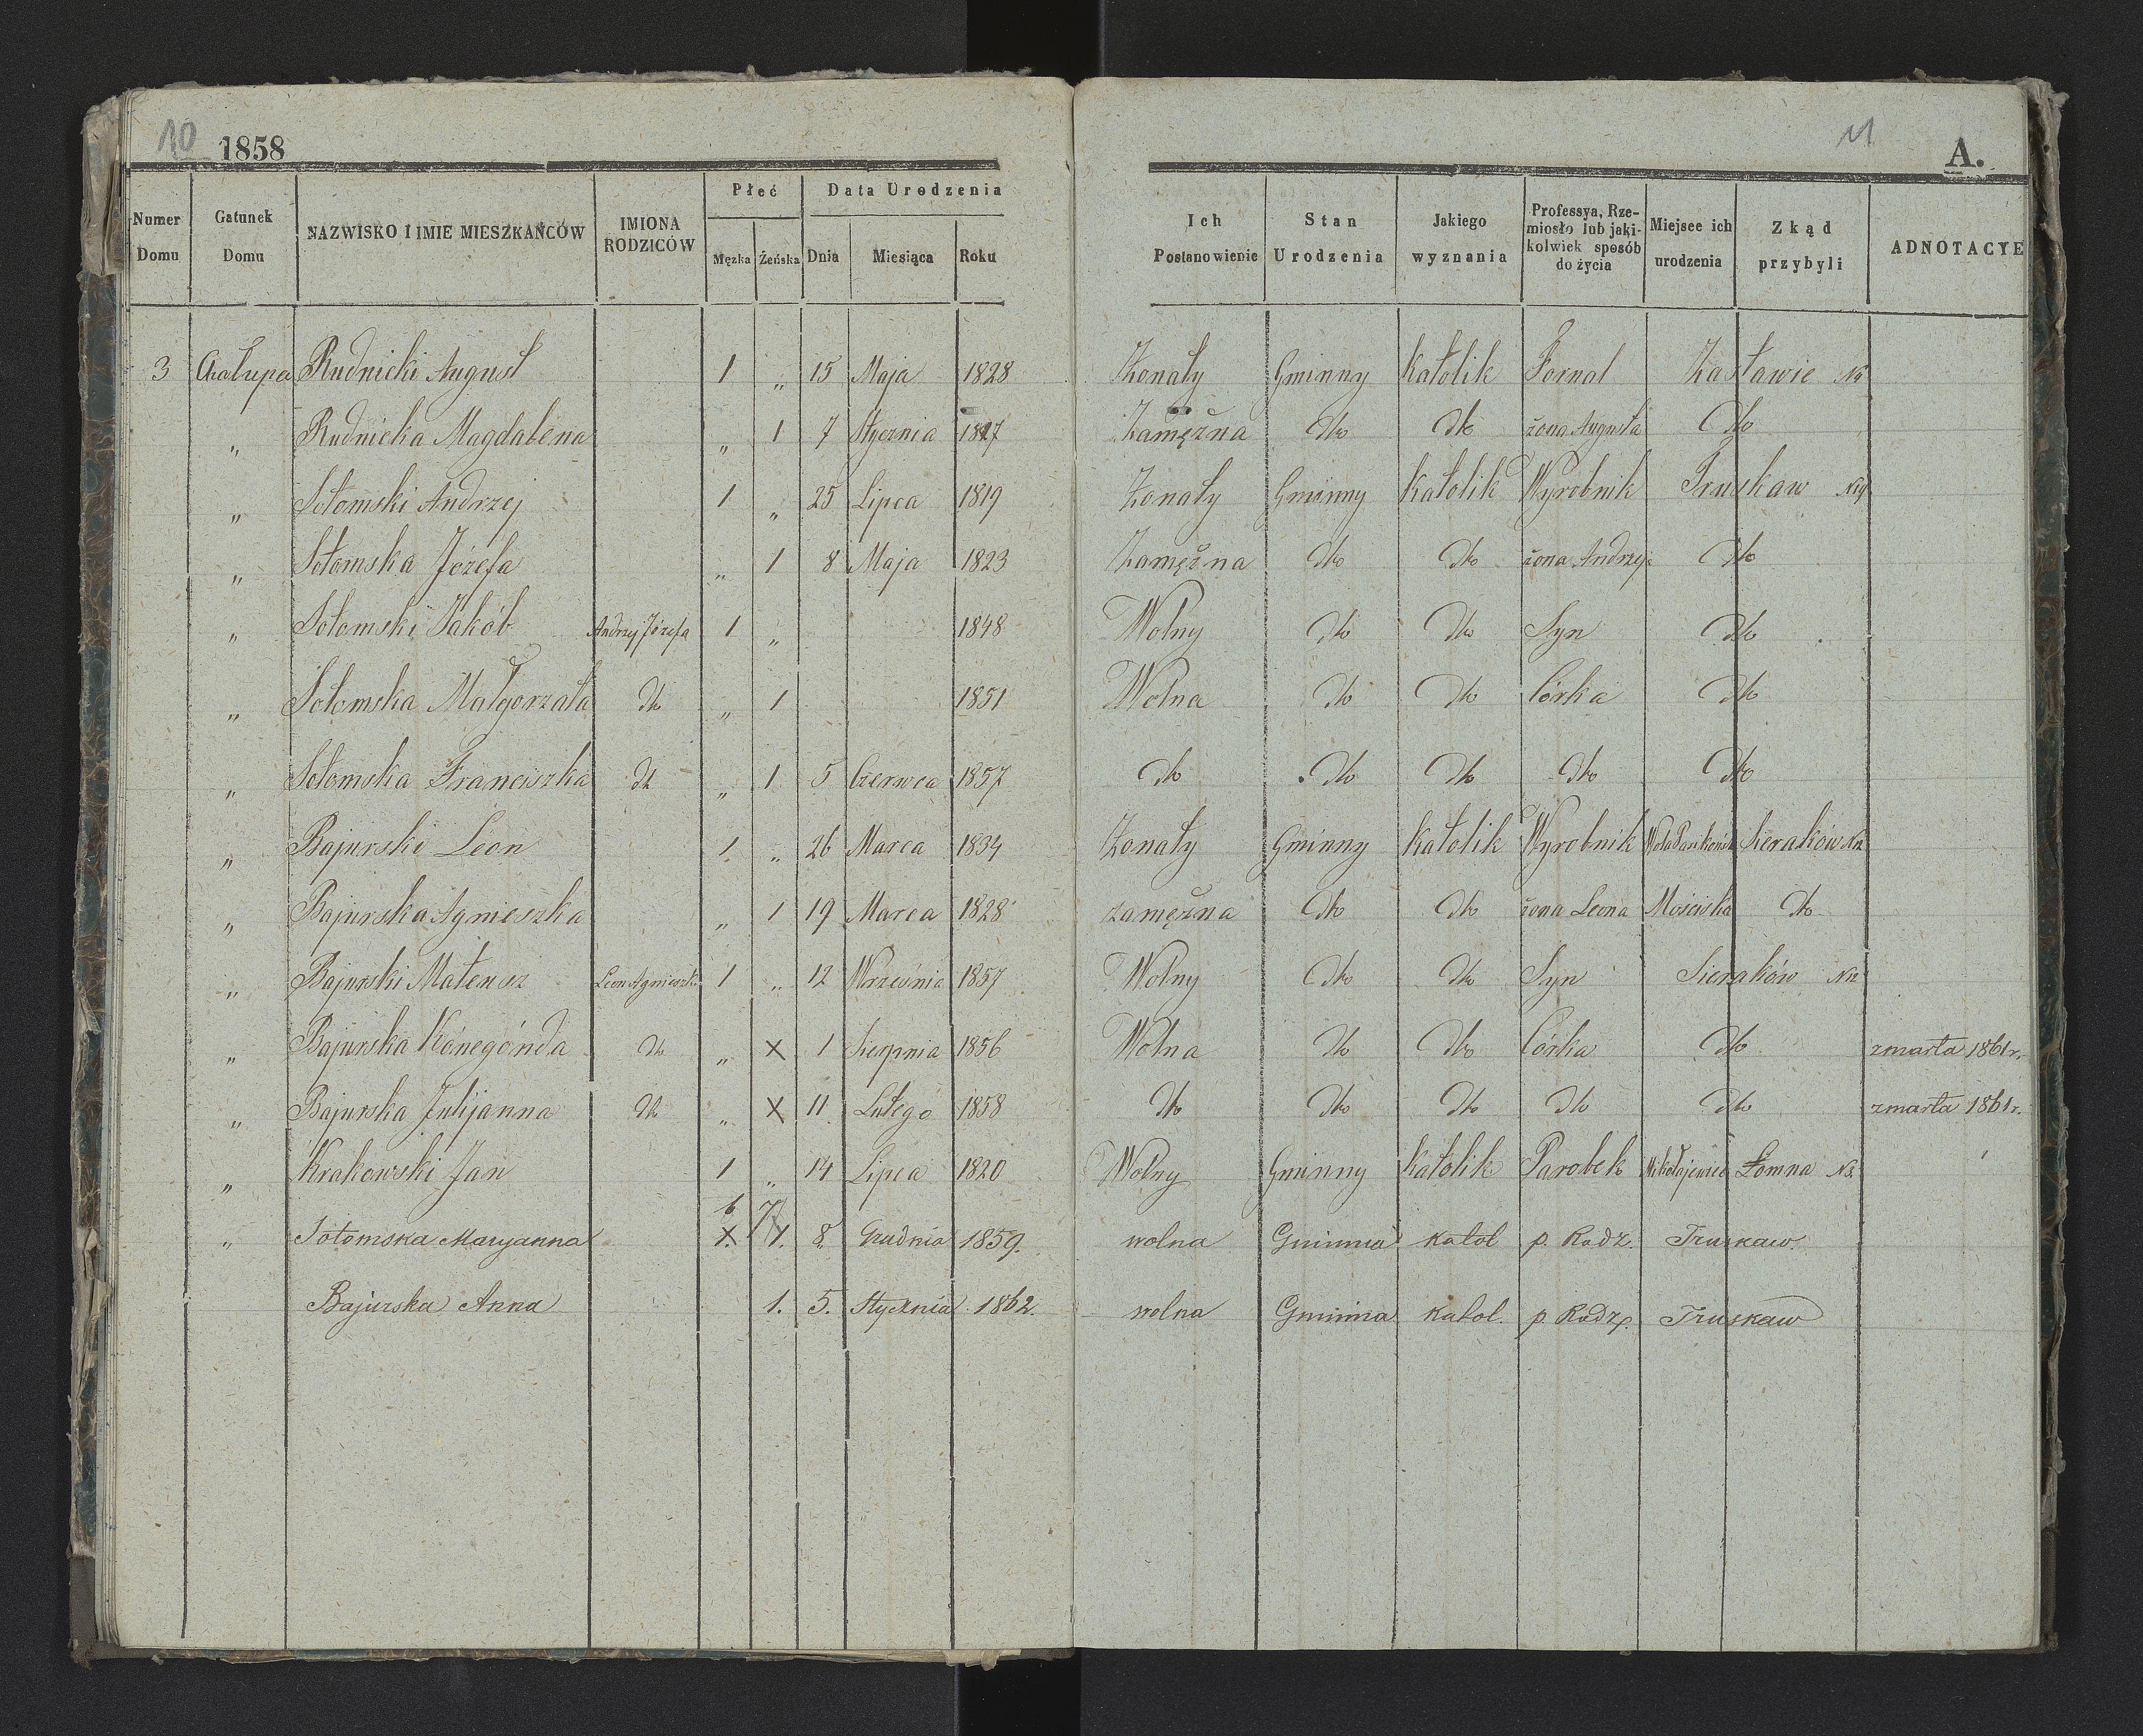 10 1858
11 A.
Numer Domu | Gatunek Domu | NAZWISKO I IMIE MIESZKAŃCÓW | IMIONA RODZICÓW | Płeć Męzka Żeńska | Data Urodzenia Dnia Miesiąca Roku | Ich Postanowienie | Stan Urodzenia | Jakiego wyznania | Professya, Rzemiosło lub jakikolwiek sposób do życia | Miejsce ich urodzenia | Zkąd przybyli | ADNOTACYE
3 Chałupa Rudnicki August 1 „ 15 Maja 1828 Żonaty Gminny Katolik Fornal Zastawie
„ Rudnicka Magdalena „ 1 7 Stycznia 1827 Zamężna dto dto żona Augusta dto
„ Sołomski Andrzej 1 „ 25 Lipca 1819 Żonaty Gminny Katolik Wyrobnik Truskaw
„ Sołomska Józefa „ 1 8 Maja 1823 Zamężna dto dto żona Andrzeja dto
„ Sołomski Jakób Andrzej Józefa 1 „ 1848 Wolny dto dto Syn dto
„ Sołomska Małgorzata dto „ 1 1851 Wolna dto dto Córka dto
„ Sołomska Franciszka dto „ 1 5 Czerwca 1857 dto dto dto dto dto
„ Bajurski Leon 1 „ 26 Marca 1834 Żonaty Gminny Katolik Wyrobnik Sieraków N12
„ Bajurska Agnieszka „ 1 19 Marca 1828 zamężna dto dto żona Leona Mościska dto
„ Bajurski Mateusz Leon Agnieszk. 1 „ 12 Września 1857 Wolny dto dto Syn Sieraków N12
„ Bajurska Kónegónda dto „ X 1 Sierpnia 1856 Wolna dto dto Córka dto zmarła 1861 r.
„ Bajurska Julijanna dto „ X 11 Lutego 1858 dto dto dto dto dto zmarła 1861 r.
„ Krakowski Jan 1 „ 14 Lipca 1820 Wolny Gminny Katolik Parobek Łomna
6 7
„ Sołomska Maryanna X 1. 8. Grudnia 1859. wolna Gminna katol p. Rodz. Truskaw.
Bajurska Anna 1. 5. Stycznia 1862. wolna Gminna katol. p. Rodz. Truskaw